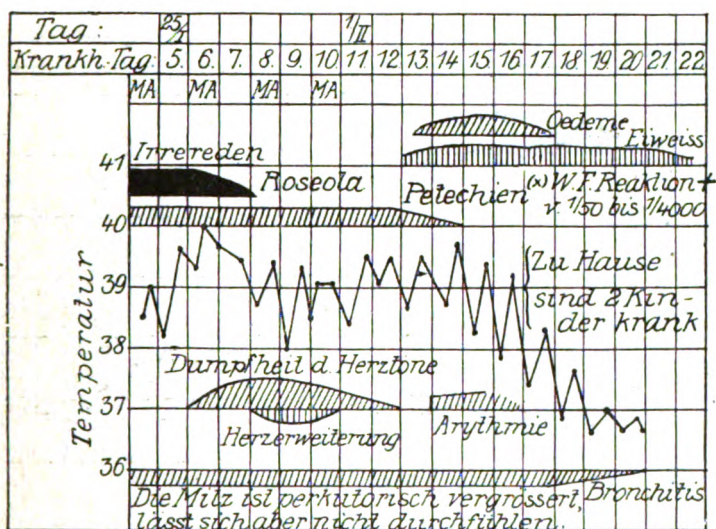 Tag: 25/I 1/II
Krankh.Tag: 5. 6. 7. 8. 9. 10. 11. 12. 13. 14. 15. 16. 17. 18. 19. 20. 21. 22.
MA MA MA MA
Oedeme
Eiweiss
41
Irrereden
Roseola
Petechien
(x) W.F. Reaktion +
v. 1/50 bis 1/4000
40
39
Zu Hause
sind 2 Kin-
der krank
38
Temperatur
Dumpfheil d. Herztöne
37
Herzerweiterung
Arythmie
36
Bronchitis
Die Milz ist perkutorisch vergrössert,
lässt sich aber nicht durchfühlen.